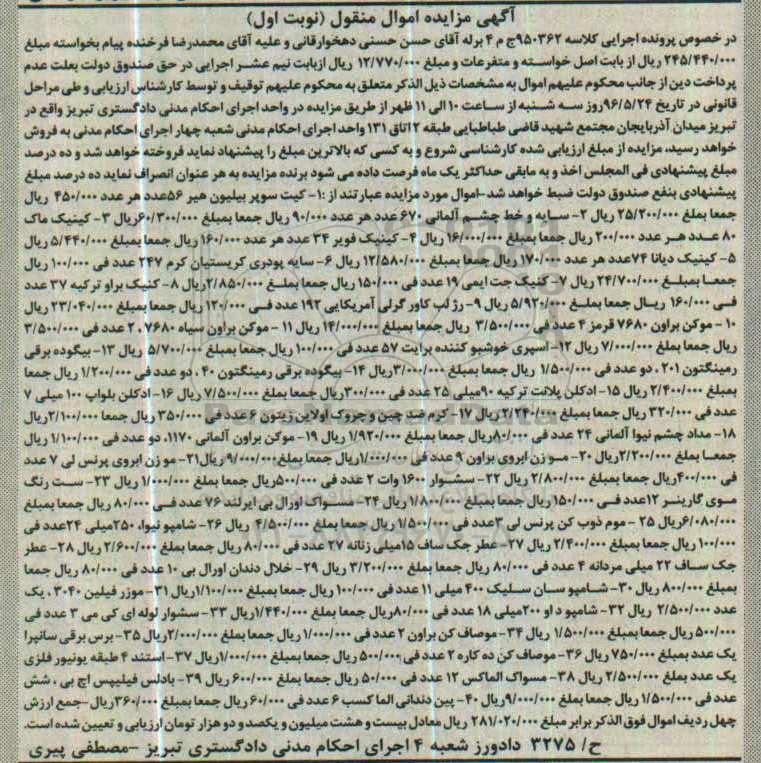 آگهی مزایده اموال منقول (نوبت اول)
در خصوص پرونده اجرایی کلاسه ۹۵۰۳۶۲ج م ۴ برله آقای حسن حسنی دهخوارقانی و علیه آقای محمدرضا فرخنده پیام بخواسته مبلغ
۲۴۵/۴۴۰/۰۰۰ ریال از بابت اصل خواسته و متفرعات و مبلغ ۱۲/۷۷۰/۰۰۰ ریال ازبابت نیم عشر اجرایی در حق صندوق دولت بعلت عدم
پرداخت دین از جانب محکوم علیهم اموال به مشخصات ذیل الذکر متعلق به محکوم علیهم توقیف و توسط کارشناس ارزیابی و طی مراحل
قانونی در تاریخ ۹۶/۵/۲۴روز سه شنبه از ساعت ۱۰ الی ۱۱ ظهر از طریق مزایده در واحد اجرای احکام مدنی دادگستری تبریز واقع در
تبریز میدان آذربایجان مجتمع شهید قاضی طباطبایی طبقه ۲ اتاق ۱۳۱ واحد اجرای احکام مدنی شعبه چهار اجرای احکام مدنی به فروش
خواهد رسید، مزایده از مبلغ ارزیابی شده کارشناسی شروع و به کسی که بالاترین مبلغ را پیشنهاد نماید فروخته خواهد شد و ده درصد
مبلغ پیشنهادی فی المجلس اخذ و به مابقی حداکثر یک ماه فرصت داده می شود برنده مزایده به هر عنوان انصراف نماید ده درصد مبلغ
پیشنهادی بنفع صندوق دولت ضبط خواهد شد-اموال مورد مزایده عبارتند از :۱- کیت سوپر بیلیون هیر ۵۶عدد هر عدد ۴۵۰/۰۰۰ ریال
جمعا بملغ ۲۵/۲۰۰/۰۰۰ ریال ۲- سایه و خط چشم آلمانی ۶۷۰عدد هر عدد ۹۰/۰۰۰ ریال جمعا بمبلغ ۶۰/۳۰۰/۰۰۰ریال ۳- کینیک ماک
۸۰ عدد هر عدد ۲۰۰/۰۰۰ ریال جمعا بمبلغ ۱۶/۰۰۰/۰۰۰ ریال ۴- کینیک فویر ۳۴ عدد هر عدد ۱۶۰/۰۰۰ ریال جمعا بمبلغ ۵/۴۴۰/۰۰۰ ریال
۵- کینیک دیانا ۷۴عدد هر عدد ۱۷۰/۰۰۰ ریال جمعا بمبلغ ۱۲/۵۸۰/۰۰۰ ریال ۶- سایه پودری کریستیان کرم ۲۴۷ عدد فی ۱۰۰/۰۰۰ ریال
جمعا بمبلغ ۲۴/۷۰۰/۰۰۰ ریال ۷- کنیک جت ایمی ۱۹ عدد فی ۱۵۰/۰۰۰ ریال جمعا بملغ ۲/۸۵۰/۰۰۰ریال ۸- کنیک براو ترکیه ۳۷ عدد
فی ۱۶۰/۰۰۰ ریال جمعا بملغ ۵/۹۲۰/۰۰۰ ریال ۹- رژ لب کاور گرلی آمریکایی ۱۹۲ عدد فی ۱۲۰/۰۰۰ ریال جمعا بمبلغ ۲۳/۰۴۰/۰۰۰ ریال
۱۰ - موکن براون ۷۶۸۰ قرمز ۴ عدد فی ۳/۵۰۰/۰۰۰ ریال جمعا بمبلغ ۱۴/۰۰۰/۰۰۰ ریال ۱۱ - موکن براون سیاه ۷۶۸۰، ۲ عدد فی ۳/۵۰۰/۰۰۰
ریال جمعا بملغ ۷/۰۰۰/۰۰۰ ریال ۱۲- اسپری خوشبو کننده برایت ۵۷ عدد فی ۱۰۰/۰۰۰ ریال جمعا بمبلغ ۵/۷۰۰/۰۰۰ ریال ۱۳- بیگوده برقی
رمینگتون ۲۰۱ ، دو عدد فی ۱/۵۰۰/۰۰۰ ریال جمعا بمبلغ ۳/۰۰۰/۰۰۰ریال ۱۴- بیگوده برقی رمینگتون ۴۰ ، دو عدد فی ۱/۲۰۰/۰۰۰ ریال جمعا
بمبلغ ۲/۴۰۰/۰۰۰ ریال ۱۵- ادکلن پلانت ترکیه ۹۰میلی ۲۵ عدد فی ۳۰۰/۰۰۰ریال جمعا بملغ ۷/۵۰۰/۰۰۰ ریال ۱۶- ادکلن بلواب ۱۰۰ میلی ۷
عدد فی ۳۲۰/۰۰۰ ریال جمعا بمبلغ ۲/۲۴۰/۰۰۰ ریال ۱۷- کرم ضد چین و چروک اولاین زیتون ۶ عدد فی ۳۵۰/۰۰۰ ریال جمعا ۲/۱۰۰/۰۰۰ریال
۱۸- مداد چشم نیوا آلمانی ۲۴ عدد فی ۸۰/۰۰۰ریال جمعا بمبلغ ۱/۹۲۰/۰۰۰ ریال ۱۹- موکن براون آلمانی ۱۱۷۰، دو عدد فی ۱/۱۰۰/۰۰۰ ریال
جمعا بمبلغ ۲/۲۰۰/۰۰۰ریال ۲۰- مو زن ابروی براون ۹ عدد فی ۱/۰۰۰/۰۰۰ریال جمعا بملغ ۹/۰۰۰/۰۰۰ ریال۲۱- مو زن ابروی پرنس لی ۷ عدد
فی ۴۰۰/۰۰۰ریال جمعا بمبلغ ۲/۸۰۰/۰۰۰ ریال ۲۲- سشوار ۱۶۰۰ وات ۲ عدد فی ۵۰۰/۰۰۰ریال جمعا بملغ ۱/۰۰۰/۰۰۰ ریال ۲۳- ست رنگ
موی گارنیر ۱۲عدد فی ۱۵۰/۰۰۰ریال جمعا بمبلغ ۱/۸۰۰/۰۰۰ ریال ۲۴- مسواک اورال بی ایرلند ۷۶ عدد فی ۸۰/۰۰۰ ریال جمعا بمبلغ
۶/۰۸۰/۰۰۰ریال ۲۵ - موم ذوب کن پرنس لی ۳عدد فی ۱/۵۰۰/۰۰۰ ریال جمعا بملغ ۴/۵۰۰/۰۰۰ ریال ۲۶- شامپو نیوا، ۲۵۰میلی ۲۴عدد فی
۱۰۰/۰۰۰ ریال جمعا بمبلغ ۲/۴۰۰/۰۰۰ ریال ۲۷- عطر جک ساف ۱۵میلی زنانه ۲۷ عدد فی ۸۰/۰۰۰ ریال جمعا بملغ ۲/۶۰۰/۰۰۰ ریال ۲۸- عطر
جک ساف ۲۲ میلی مردانه ۴ عدد فی ۸۰/۰۰۰ ریال جمعا بملغ ۳/۲۰۰/۰۰۰ ریال ۲۹- خلال دندان اورال بی ۱۰ عدد فی ۸۰/۰۰۰ ریال جمعا
بمبلغ ۸۰۰/۰۰۰ ریال ۳۰- شامپو سان سلیک ۴۰۰ میلی ۱۱ عدد فی ۱۰۰/۰۰۰ ریال جمعا بمبلغ ۱/۱۰۰/۰۰۰ریال ۳۱- موزر فیلین ۳۰۴۰ ، یک
عدد ۲/۵۰۰/۰۰۰ ریال ۳۲- شامپو د او ۲۰۰میلی ۱۸ عدد فی ۸۰/۰۰۰ریال جمعا بملغ ۱/۴۴۰/۰۰۰ریال ۳۳- سشوار لوله ای کی می ۳ عدد فی
۵۰۰/۰۰۰ ریال جمعا بمبلغ ۱/۵۰۰/۰۰۰ ریال ۳۴- موصاف کن براون ۲ عدد فی ۱/۰۰۰/۰۰۰ ریال جمعا بملغ ۲/۰۰۰/۰۰۰ریال ۳۵- برس برقی سانیرا
یک عدد بمبلغ ۷۵۰/۰۰۰ ریال ۳۶- موصاف کن ده کاره ۲ عدد فی ۵۰۰/۰۰۰ ریال جمعا بمبلغ ۱/۰۰۰/۰۰۰ریال ۳۷- استند ۴ طبقه یونیور فلزی
یک عدد بملغ ۲/۵۰۰/۰۰۰ ریال ۳۸- مسواک الماکس ۱۲ عدد فی ۵۰/۰۰۰ ریال جمعا بملغ ۶۰۰/۰۰۰ ریال ۳۹- بادلس فیلیپس اچ بی ، شش
عدد فی ۱/۵۰۰/۰۰۰ ریال جمعا بملغ ۹/۰۰۰/۰۰۰ریال ۴۰- پین دندانی الما کسب ۶ عدد فی ۶۰/۰۰۰ ریال جمعا بمبلغ ۳۶۰/۰۰۰ریال -جمع ارزش
چهل ردیف اموال فوق الذکر برابر مبلغ ۲۸۱/۰۲۰/۰۰۰ ریال معادل بیست و هشت میلیون و یکصد و دو هزار تومان ارزیابی و تعیین شده است.
ح/ ۳۲۷۵ دادورز شعبه ۴ اجرای احکام مدنی دادگستری تبریز -مصطفی پیری